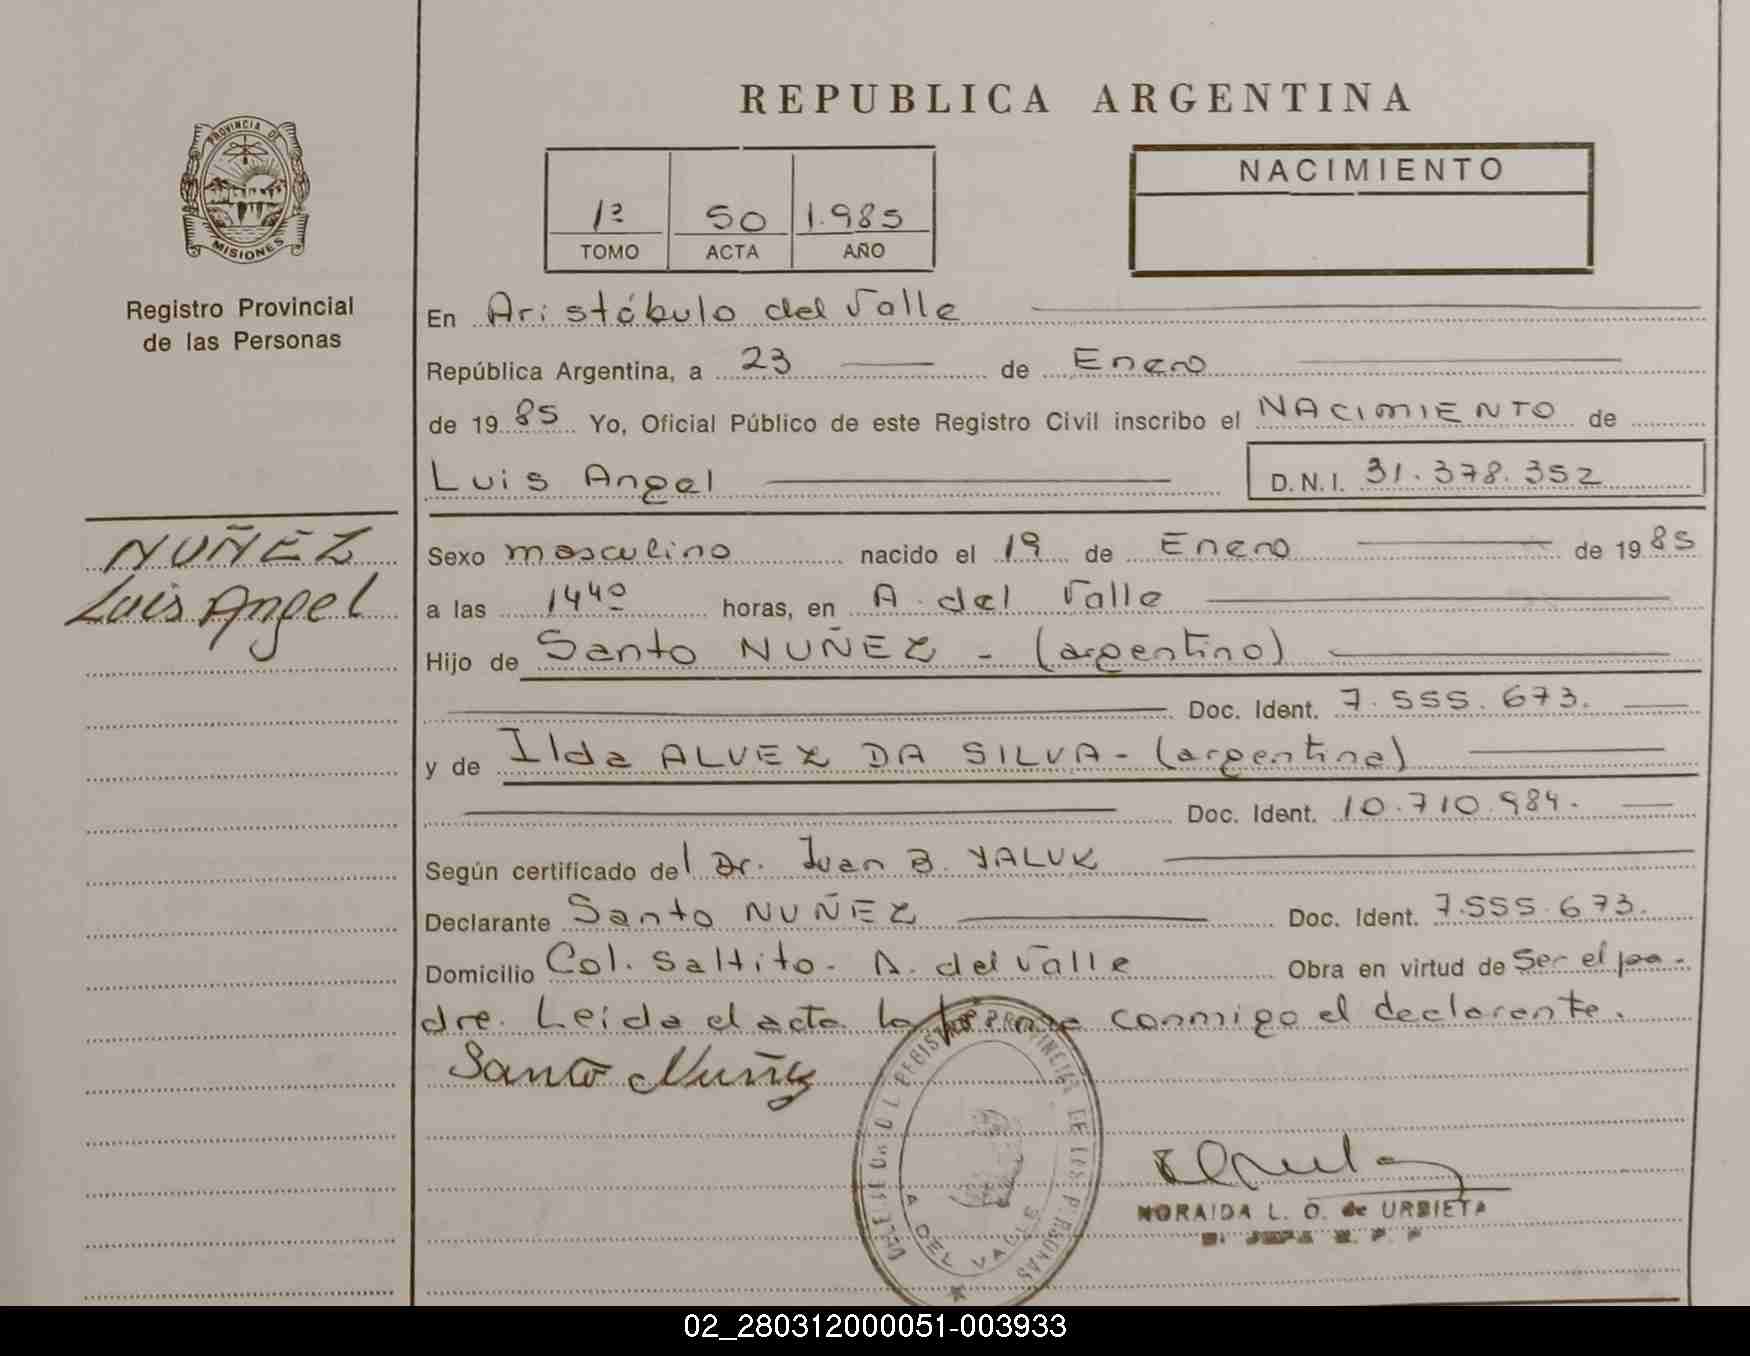 REPUBLICA ARGENTINA
PROVINCIA DE
MISIONES
Registro Provincial
de las Personas
1º 50 1.985
TOMO ACTA AÑO
NACIMIENTO
En Aristóbulo del Valle
República Argentina, a 23 de Enero
de 1985 Yo, Oficial Público de este Registro Civil inscribo el NACIMIENTO de
Luis Angel D.N.I. 31.378.352
NUÑEZ
Luis Angel
Sexo masculino nacido el 19 de Enero de 1985
a las 144º horas, en A. del Valle
Hijo de Santo NUÑEZ - (argentino)
Doc. Ident. 7.555.673.
y de Ilda ALVEZ DA SILVA - (argentina)
Doc. Ident. 10.710.984.
Según certificado del Dr. Juan B. YALUK
Declarante Santo NUÑEZ Doc. Ident. 7.555.673.
Domicilio Col. Saltito - A. del Valle Obra en virtud de Ser el pa-
dre. Leida el acta la conmigo el declarante.
Santo Nuñez
REGISTRO PROVINCIAL DE LAS PERSONAS
A DEL VALLE
NORAIDA L. O. de URBIETA
02_280312000051-003933